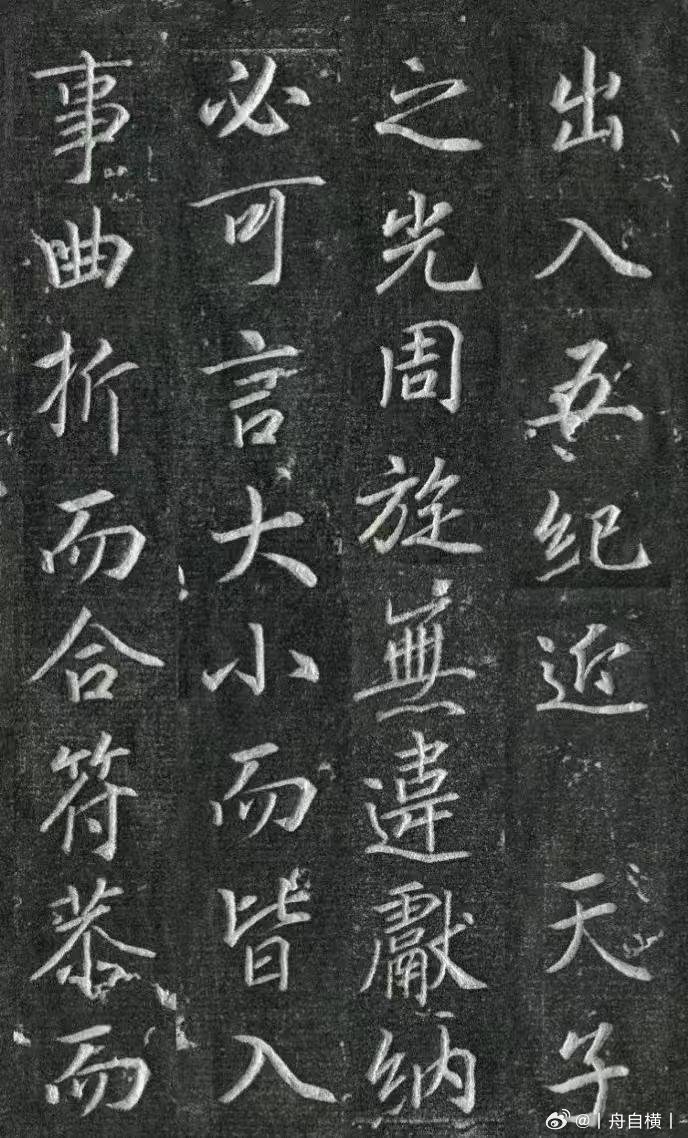 出入五纪近天子
之光周旋無違獻納
必可言大小而皆入
事曲折而合符恭而
@丨舟自横丨